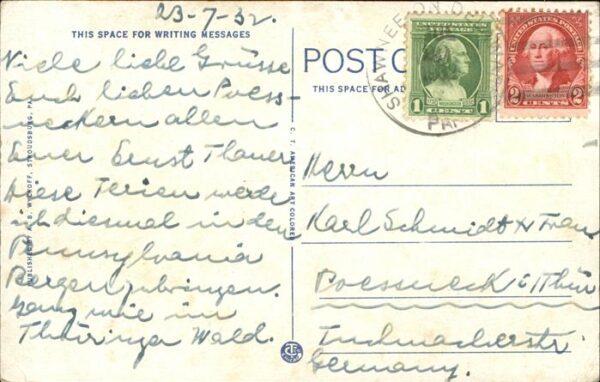 23-7-32.
THIS SPACE FOR WRITING MESSAGES
Viele liebe Grüsse
Euch lieben Poess-
neckern allen
Euer Ernst Thauer
Diese Ferien werde
ich diesmal in den
Pennsylvania
Bergen zubringen.
Ganz wie im
Thüringa Wald.
PUBLISHED BY A. B. WYCKOFF, STROUDSBURG, PA.
C. T. AMERICAN ART COLORED
POST C
THIS SPACE FOR AD
SHAWNEE ON D
PA.
UNITED STATES POSTAGE
1 CENT 1
UNITED STATES POSTAGE
2 WASHINGTON 2
CENTS
Herrn
Karl Schmidt & Frau
Poessneck i Thür
Tuchmacherstr.
Germany.